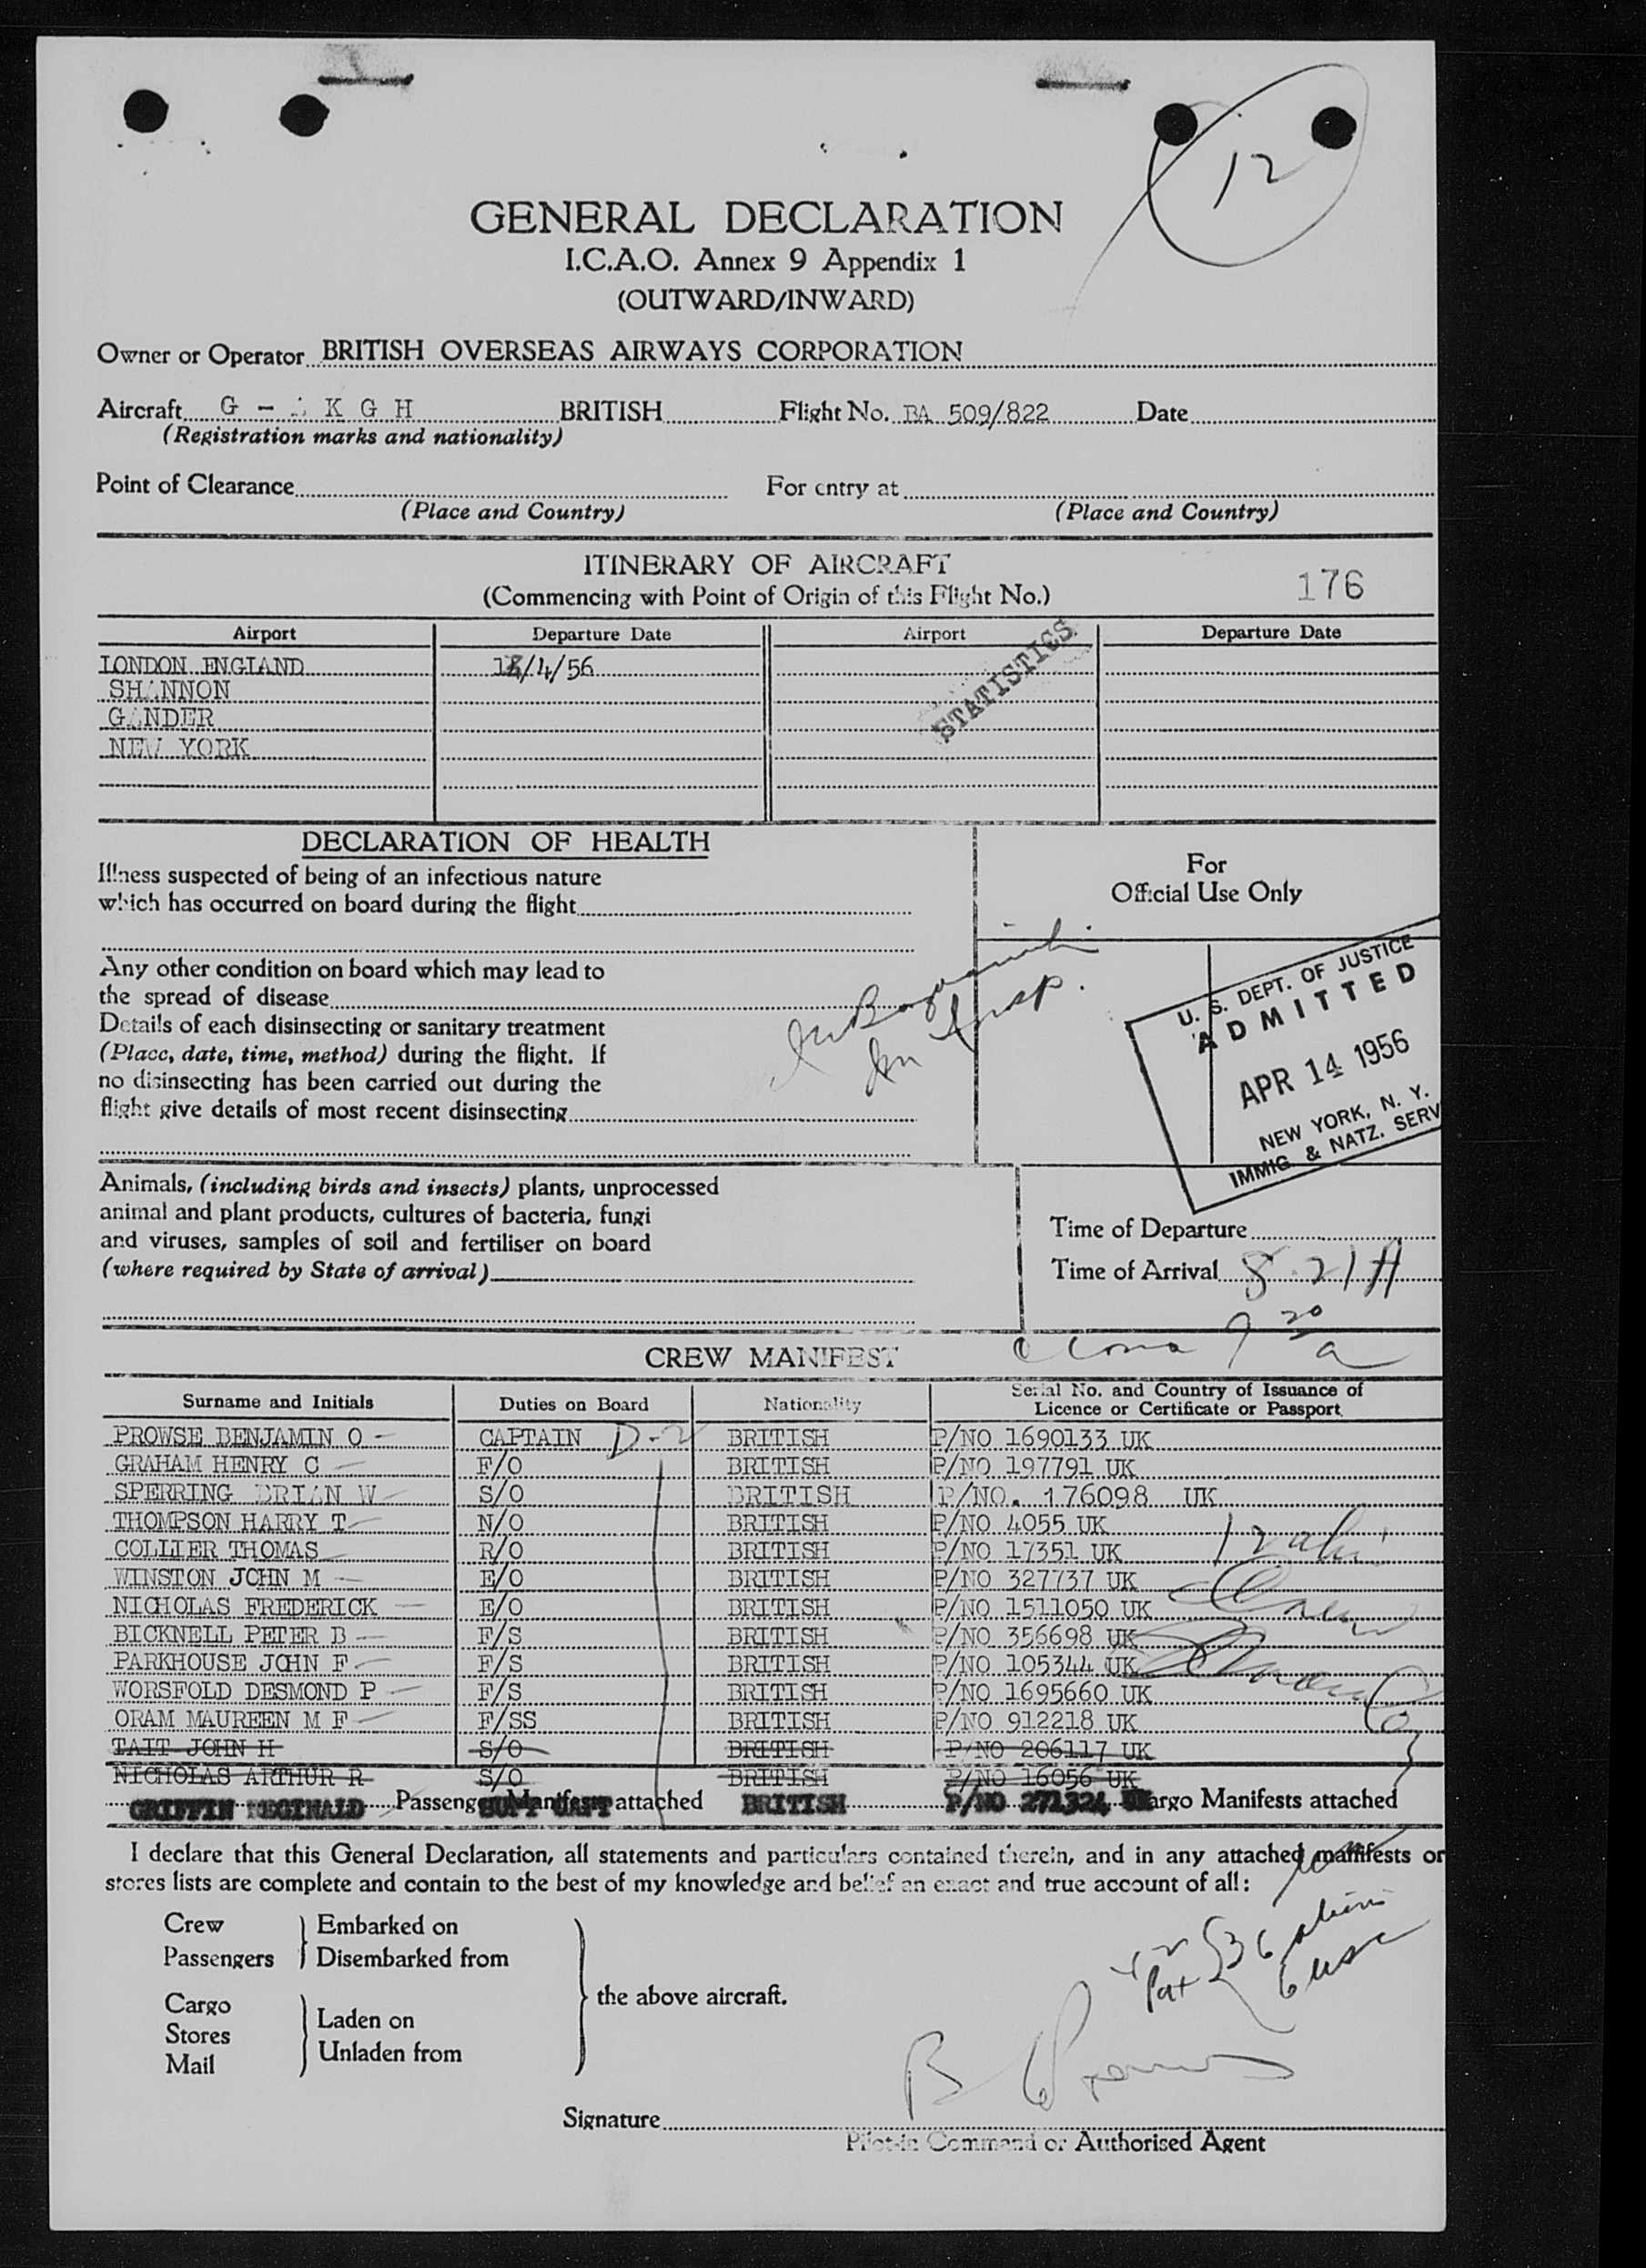 12
GENERAL DECLARATION
I.C.A.O. Annex 9 Appendix 1
(OUTWARD/INWARD)
Owner or Operator BRITISH OVERSEAS AIRWAYS CORPORATION
Aircraft G - KGH BRITISH Flight No. BA 509/822 Date
(Registration marks and nationality)
Point of Clearance For entry at
(Place and Country) (Place and Country)
ITINERARY OF AIRCRAFT
(Commencing with Point of Origin of this Flight No.) 176
Airport Departure Date Airport Departure Date
LONDON ENGLAND /4/56
SHANNON
GANDER
NEW YORK
STATISTICS
DECLARATION OF HEALTH
For
Official Use Only
Illness suspected of being of an infectious nature
which has occurred on board during the flight
Any other condition on board which may lead to
the spread of disease
Details of each disinsecting or sanitary treatment
(Place, date, time, method) during the flight. If
no disinsecting has been carried out during the
flight give details of most recent disinsecting
Insp.
U. S. DEPT. OF JUSTICE
ADMITTED
APR 14 1956
NEW YORK, N. Y.
IMMIG. & NATZ. SERV
Animals, (including birds and insects) plants, unprocessed
animal and plant products, cultures of bacteria, fungi
and viruses, samples of soil and fertiliser on board
(where required by State of arrival)
Time of Departure
Time of Arrival 8.21A
CREW MANIFEST
Surname and Initials Duties on Board Nationality Serial No. and Country of Issuance of Licence or Certificate or Passport
PROWSE BENJAMIN O CAPTAIN D-2 BRITISH P/NO 1690133 UK
GRAHAM HENRY C F/O BRITISH P/NO 197791 UK
SPERRING BRIAN W S/O BRITISH P/NO. 176098 UK
THOMPSON HARRY T N/O BRITISH P/NO 4055 UK
COLLIER THOMAS R/O BRITISH P/NO 17351 UK
WINSTON JOHN M E/O BRITISH P/NO 327737 UK
NICHOLAS FREDERICK E/O BRITISH P/NO 1511050 UK
BICKNELL PETER B F/S BRITISH P/NO 356698 UK
PARKHOUSE JOHN F F/S BRITISH P/NO 105344 UK
WORSFOLD DESMOND P F/S BRITISH P/NO 1695660 UK
ORAM MAUREEN M F F/SS BRITISH P/NO 912218 UK
TAIT JOHN H S/O BRITISH P/NO 206117 UK
NICHOLAS ARTHUR R S/O BRITISH P/NO 16056 UK
GRIFFIN REGINALD SUPY CAPT BRITISH P/NO 271324 UK
Passenger Manifests attached Cargo Manifests attached
I declare that this General Declaration, all statements and particulars contained therein, and in any attached manifests or
stores lists are complete and contain to the best of my knowledge and belief an exact and true account of all:
Crew Embarked on
Passengers Disembarked from
the above aircraft.
Cargo Laden on
Stores
Mail Unladen from
Signature
Pilot-in Command or Authorised Agent